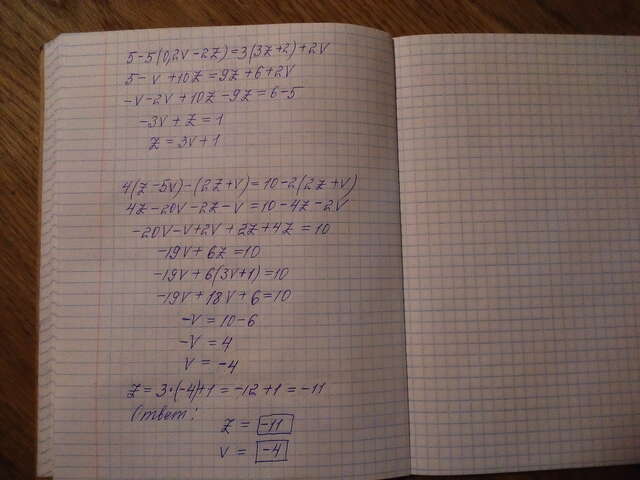 5-5(0,2v-2z)=3(3z+2)+2v
5-v+10z=9z+6+2v
-v-2v+10z-9z=6-5
-3v+z=1
z=3v+1
4(z-5v)-(2z+v)=10-2(2z+v)
4z-20v-2z-v=10-4z-2v
-20v-v+2v+2z+4z=10
-19v+6z=10
-19v+6(3v+1)=10
-19v+18v+6=10
-v=10-6
-v=4
v=-4
z=3·(-4)+1=-12+1=-11
Ответ:
z=-11
v=-4